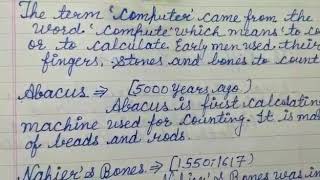 The term 'Computer' came from the
word 'Compute' which means to
or to calculate. Early men used their
fingers, stones and bones to count
Abacus → [5000 Years ago]
Abacus is first calculating
machine used for counting. It is
of beads and rods.
Napier's Bones → [1550-1617]
Bones was